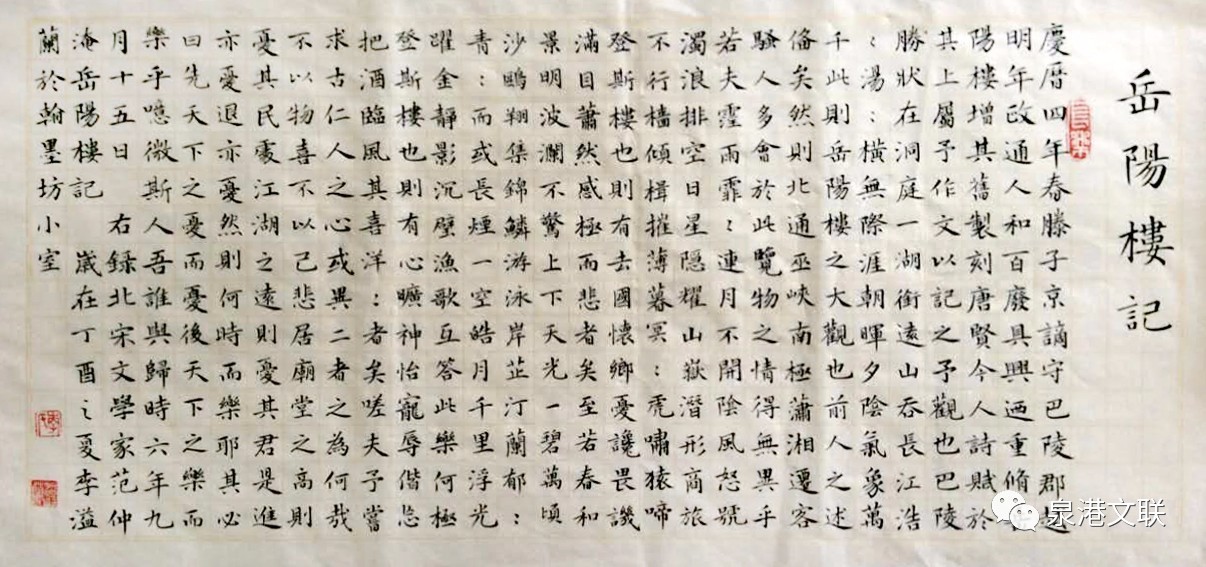 岳陽樓記
慶厝四年春滕子京謫守巴陵郡越
明年政通人和百廢具興迺重脩
陽樓增其舊製刻唐賢今人詩賦於
其上屬予作文以記之予觀也巴陵
勝狀在洞庭一湖銜遠山吞長江浩
：湯：橫無際涯朝暉夕陰氣象萬
千此則岳陽樓之大觀也前人之述
俻矣然則北通巫峽南極瀟湘遷客
騷人多會於此覽物之情得無異乎
若夫霪雨霏：連月不開陰風怒號
濁浪排空日星隱耀山嶽潛形商旅
不行檣傾楫摧薄暮冥：虎嘯猿啼
登斯樓也則有去國懷鄉憂讒畏譏
滿目蕭然感極而悲者矣至若春和
景明波瀾不驚上下天光一碧萬頃
沙鷗翔集錦鱗游泳岸芷汀蘭郁：
青：而或長煙一空皓月千里浮光
躍金靜影沉璧漁歌互答此樂何極
登斯樓也則有心曠神怡寵辱偕忘
把酒臨風其喜洋：者矣嗟夫予嘗
求古仁人之心或異二者之為何哉
不以物喜不以己悲居廟堂之高則
憂其民處江湖之遠則憂其君是進
亦憂退亦憂然則何時而樂耶其必
曰先天下之憂而憂後天下之樂而
樂乎噫微斯人吾誰與歸時六年九
月十五日 右錄北宋文學家范仲
淹岳陽樓記 歲在丁酉之夏李溢
蘭於翰墨坊小室
泉港文联